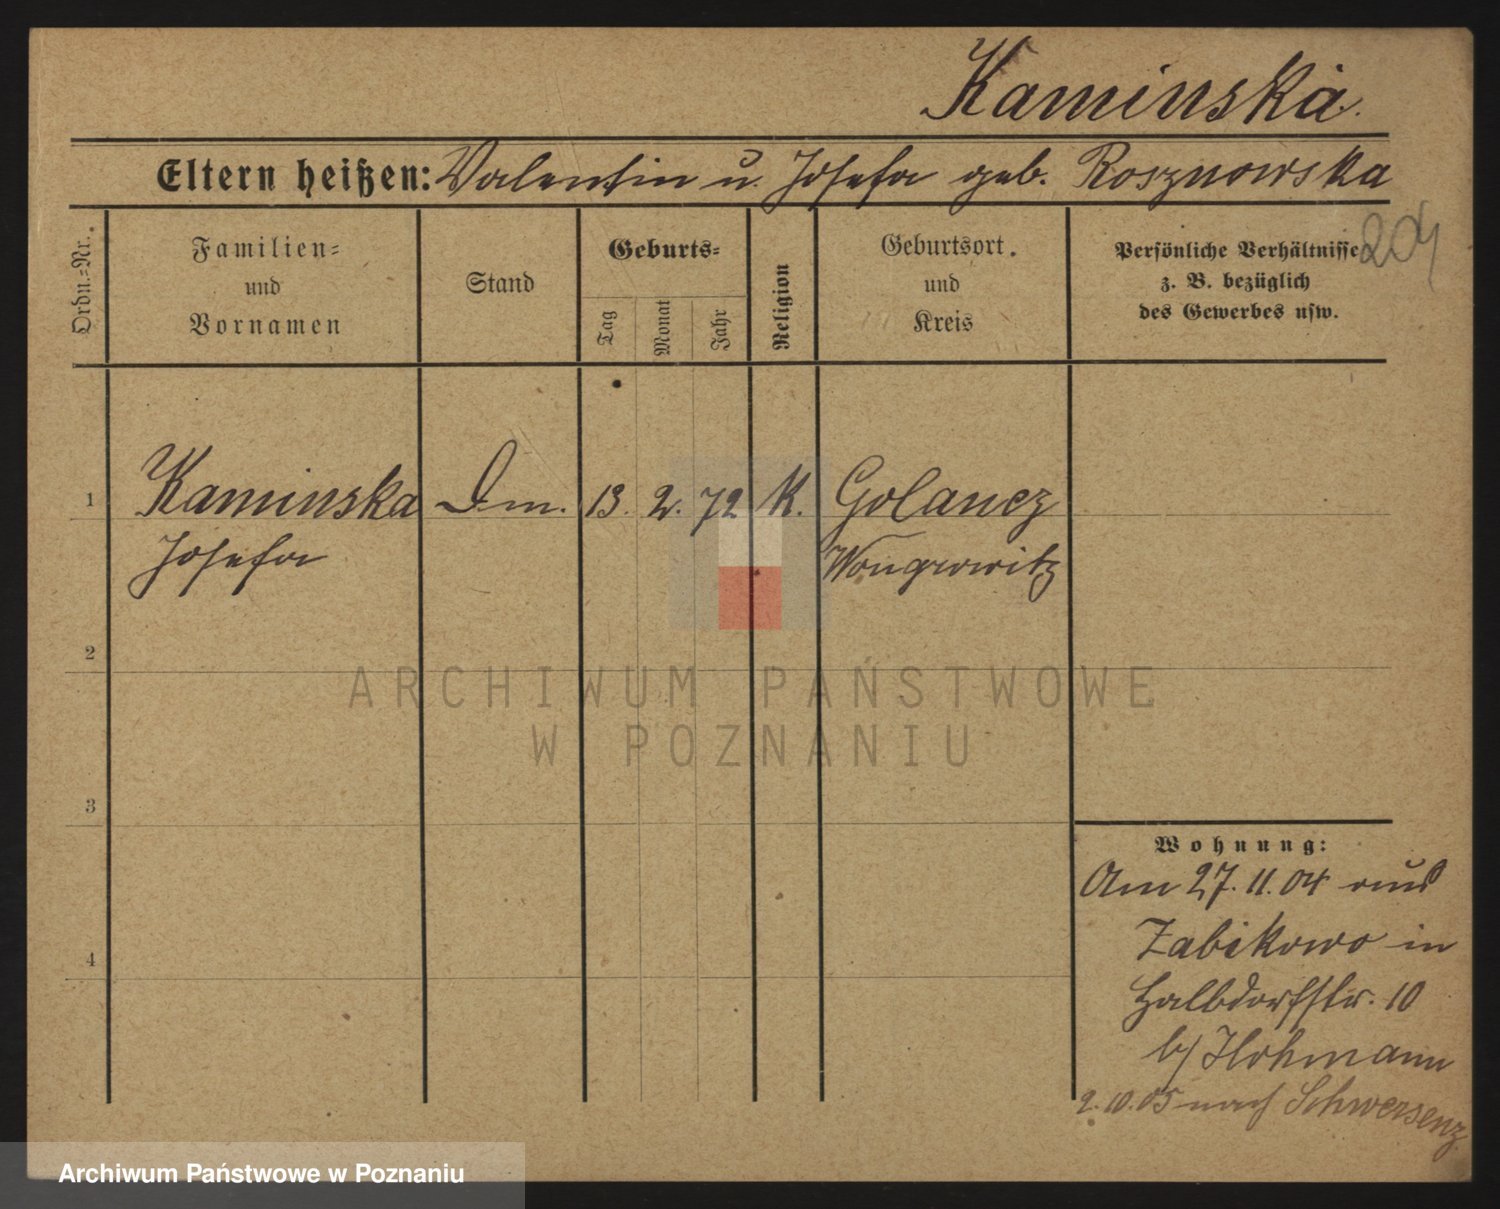 Kaminska.
Eltern heißen: Valentin u. Josefa geb. Rosznowska
Ordn.-Nr.
Familien- und Vornamen
Stand
Geburts-
Tag
Monat
Jahr
Religion
Geburtsort. und Kreis
Persönliche Verhältnisse
z. B. bezüglich
des Gewerbes usw.
204
1 Kaminska Dm. 13. 2. 72 K. Golancz
Josefa Wongrowitz
2
3
4
Wohnung:
Am 27. 11. 04 aus
Zabikowo in
Halbdorfstr. 10
b/ Hohmann
2. 10. 05 nach Schwersenz
ARCHIWUM PAŃSTWOWE
W POZNANIU
Archiwum Państwowe w Poznaniu